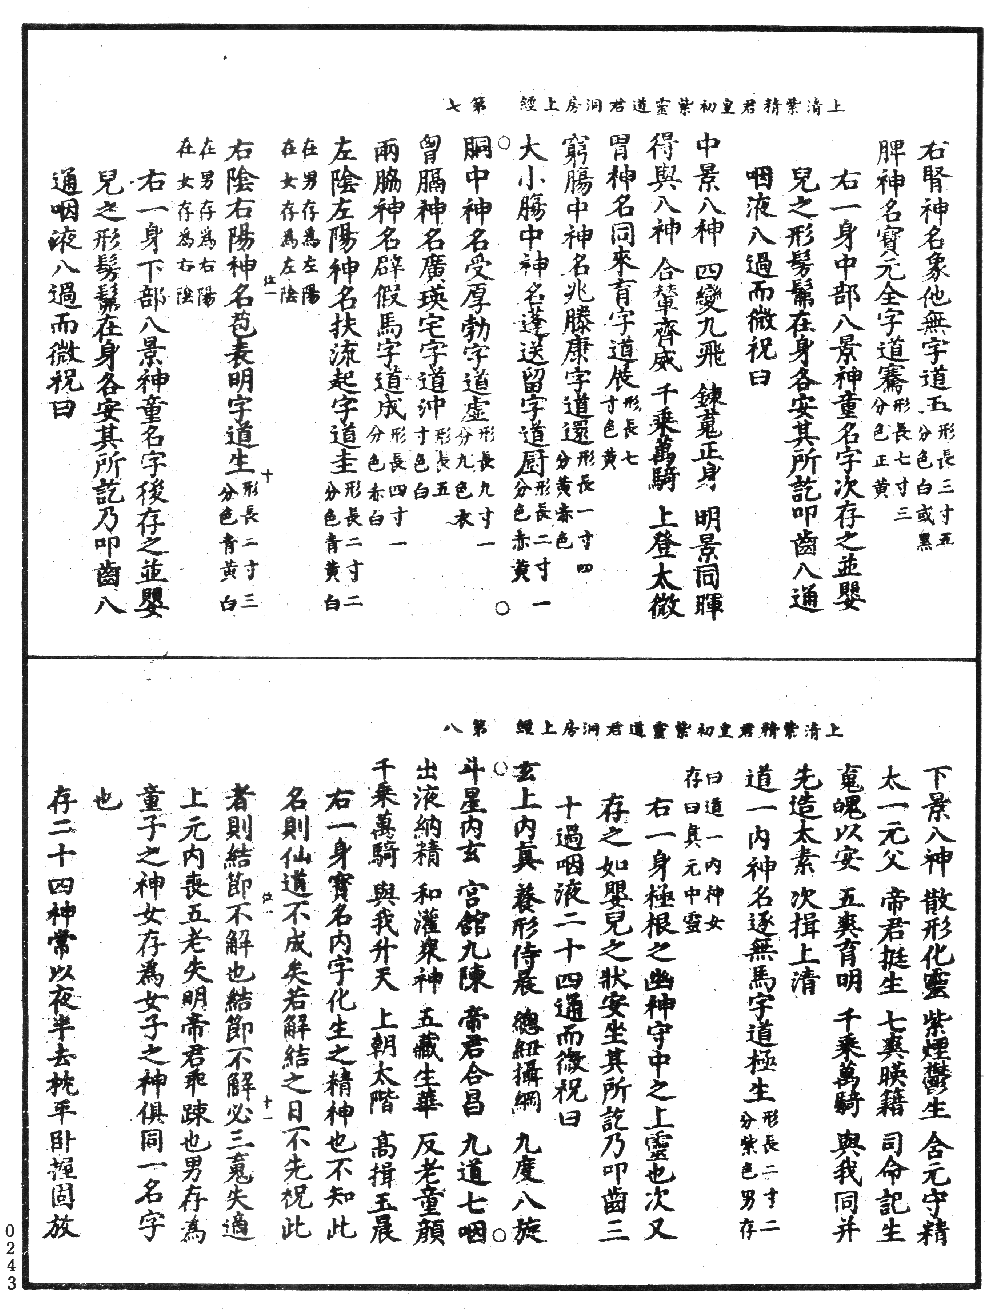 上清紫精君皇初紫靈道君洞房上經　第七
右腎神名象他無字道玉形長三寸五分色白或黑
脾神名寶元全字道騫形長七寸三分色正黃
右一身中部八景神童名字次存之並嬰
兒之形髣髴在身各安其所訖叩齒八通
咽液八過而微祝曰
中景八神　四變九飛　鍊䰟正身　明景同暉
得與八神　合輦齊威　千乘萬騎　上登太微
胃神名同來育字道展形長七寸色黃
窮腸中神名兆滕康字道還形長一寸四分黃赤色
大小腸中神名蓬送留字道廚形長二寸一分色赤黃
胴中神名受厚勃字道虛形長九寸一分九色衣
胷膈神名廣瑛宅字道沖形長五寸色白
兩脇神名辟假馬字道成形長四寸一分色赤白
左陰左陽神名扶流起字道圭形長二寸二分色青黃白
在男存為左陽在女存為左陰
右陰右陽神名苞表明字道生形長二寸三分色青黃白
在男存為右陽在女存為右陰
右一身下部八景神童名字後存之並嬰
兒之形髣髴在身各安其所訖乃叩齒八
通咽液八過而微祝曰
位一　十
上清紫精君皇初紫靈道君洞房上經　第八
下景八神　散形化靈　紫煙鬱生　含元守精
太一元父　帝君挺生　七爽映籍　司命記生
䰟魄以安　五爽育明　千乘萬騎　與我同并
先造太素　次揖上清
道一內神名逐無馬字道極生形長二寸二分紫色男存
曰道一內神女存曰真元中靈
右一身極根之幽神守中之上靈也次又
存之如嬰兒之狀安坐其所訖乃叩齒三
十過咽液二十四通而微祝曰
玄上內真　養形侍晨　總紐攝綱　九度八旋
斗星內玄　宮館九陳　帝君合昌　九道七咽
出液納精　和灌衆神　五藏生華　反老童顏
千乘萬騎　與我升天　上朝太階　高揖玉晨
右一身寶名內字化生之精神也不知此
名則仙道不成矣若解結之日不先祝此
者則結節不解也結節不解必三䰟失適
上元內喪五老失明帝君乖踈也男存為
童子之神女存為女子之神俱同一名字
也
存二十四神常以夜半去枕平卧握固放
位一　十一
0243